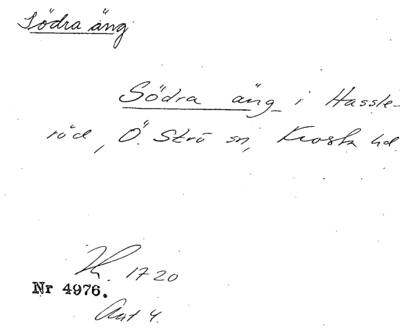 Södra äng
Södra äng i Hassle-
röd, Ö. Strö sn, Frosta hd.
1720
Nr 4976.
Akt 4.